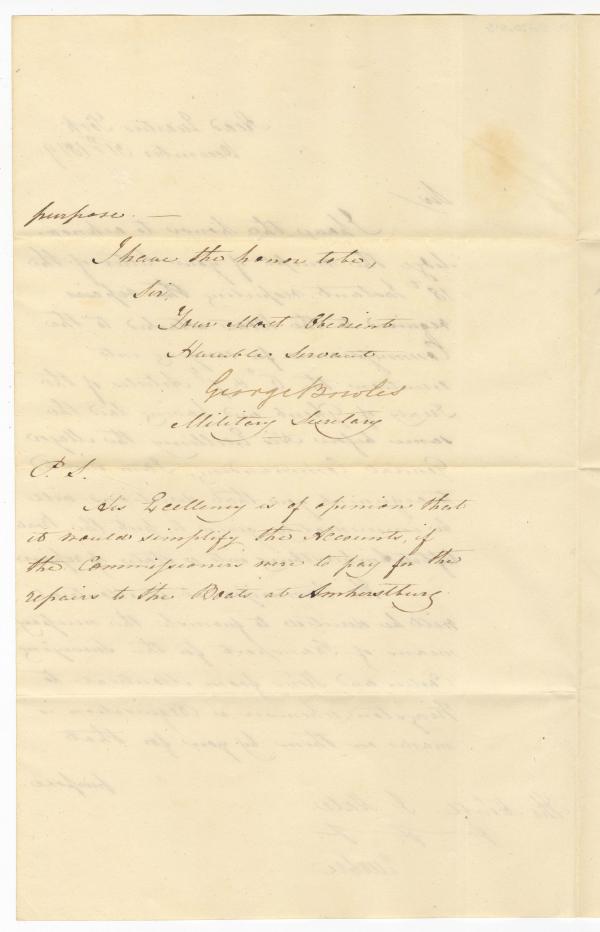 purpose. —
I have the honor to be,
Sir,
Your Most Obedient
Humble Servant
George Bowles
Military Secretary
P. S.
His Excellency is of opinion that
it would simplify the Accounts, if
the Commissioners were to pay for the
repairs to the Boats at Amherstburg